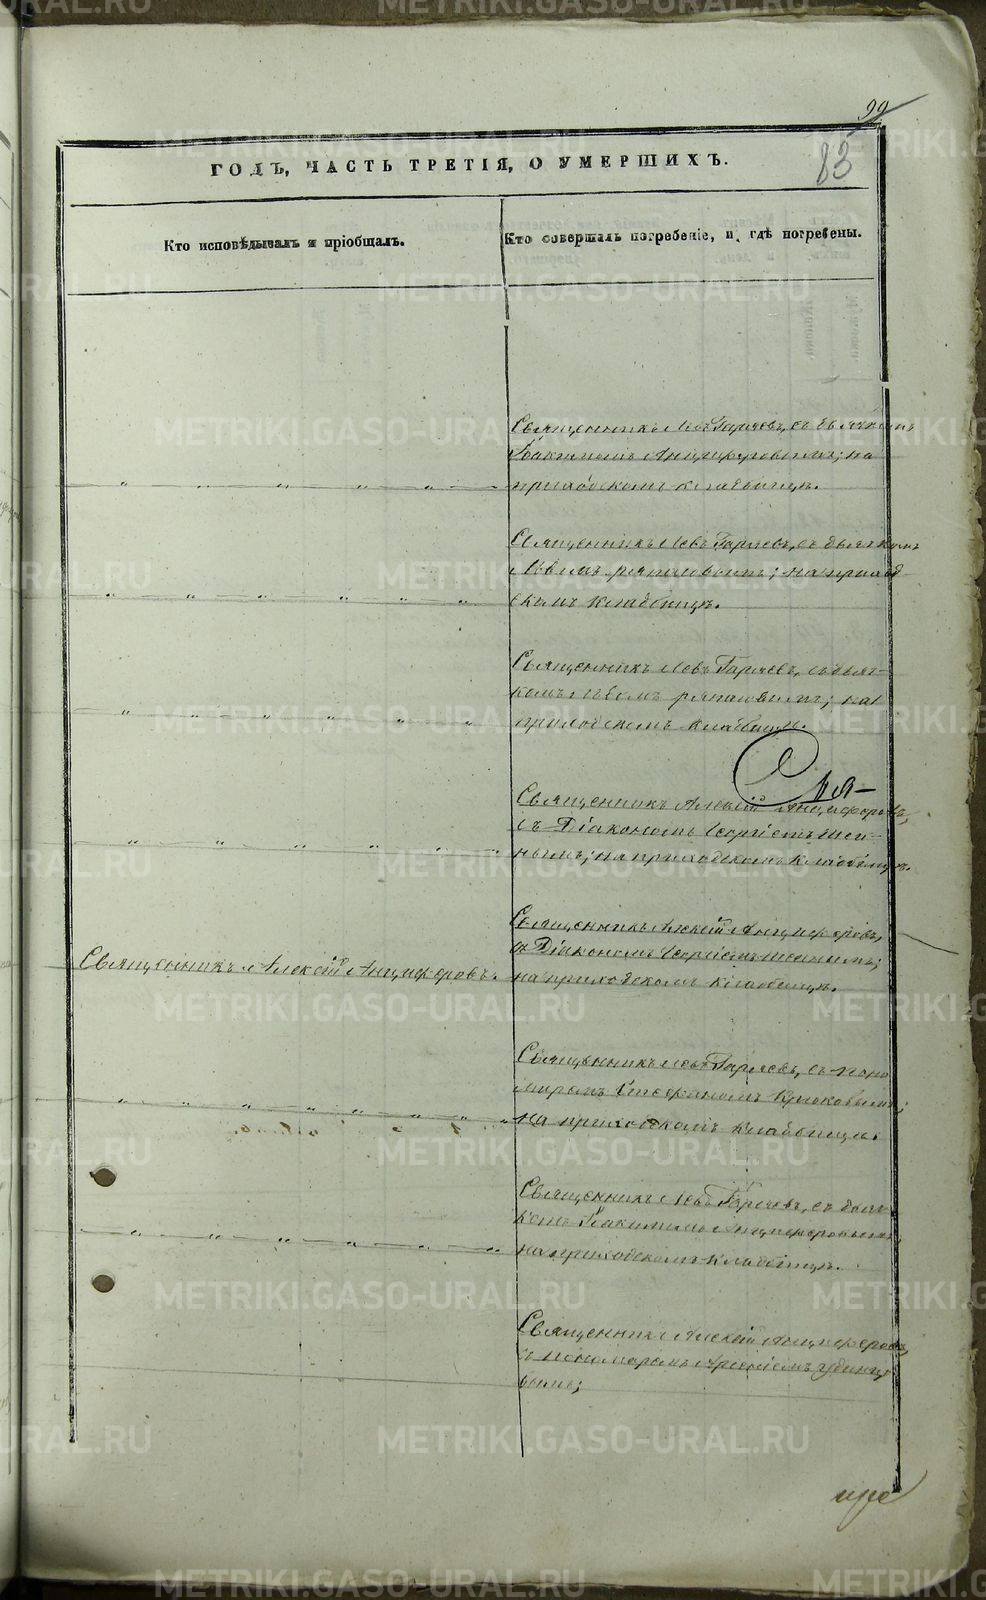 99
83
ГОДЪ, ЧАСТЬ ТРЕТІЯ, О УМЕРШИХЪ.
Кто исповѣдывалъ и пріобщалъ.
Кто совершалъ погребеніе, и гдѣ погребены.
Священникъ Левъ Гаряевъ, съ дьячкомъ
Іоакимомъ Анциферовымъ; на
приходскомъ кладбищѣ.
Священникъ Левъ Гаряевъ, съ дьячкомъ
; на приход
скомъ кладбищѣ.
Священникъ Левъ Гаряевъ, съ дьяч-
комъ ; на
приходскомъ кладбищѣ.
Священникъ Алексій Анциферовъ,
съ Діакономъ Георгіемъ
; на приходскомъ кладбищѣ.
Священникъ Алексій Анциферовъ,
съ Діакономъ Георгіемъ
Священникъ Алексій Анциферовъ.
на приходскомъ кладбищѣ.
Священникъ Левъ Гаряевъ, съ поно
маремъ Стефаномъ Крюковымъ;
на приходскомъ кладбищѣ.
Священникъ Левъ Гаряевъ, съ дьяч
комъ Іоакимомъ Анциферовымъ,
на приходскомъ кладбищѣ.
Священникъ Алексій Анциферовъ,
съ пономаремъ
METRIKI.GASO-URAL.RU